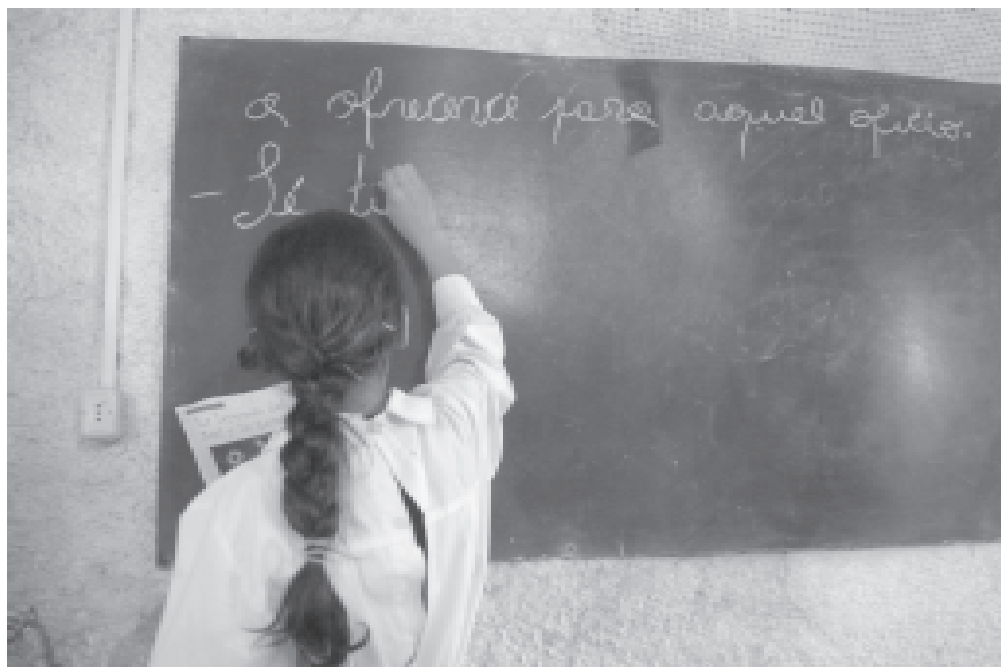 a ofrecerá para aquel oficio.
- Se